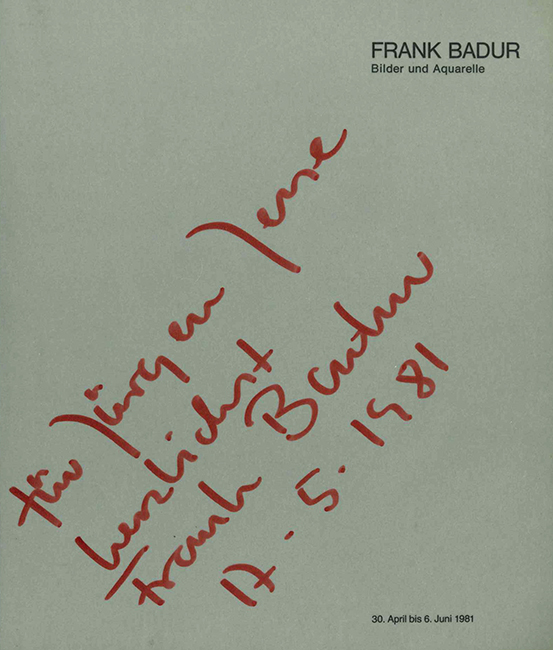 FRANK BADUR
Bilder und Aquarelle
für Jürgen Jese
herzlichst
Frank Badur
17.5.1981
30. April bis 6. Juni 1981